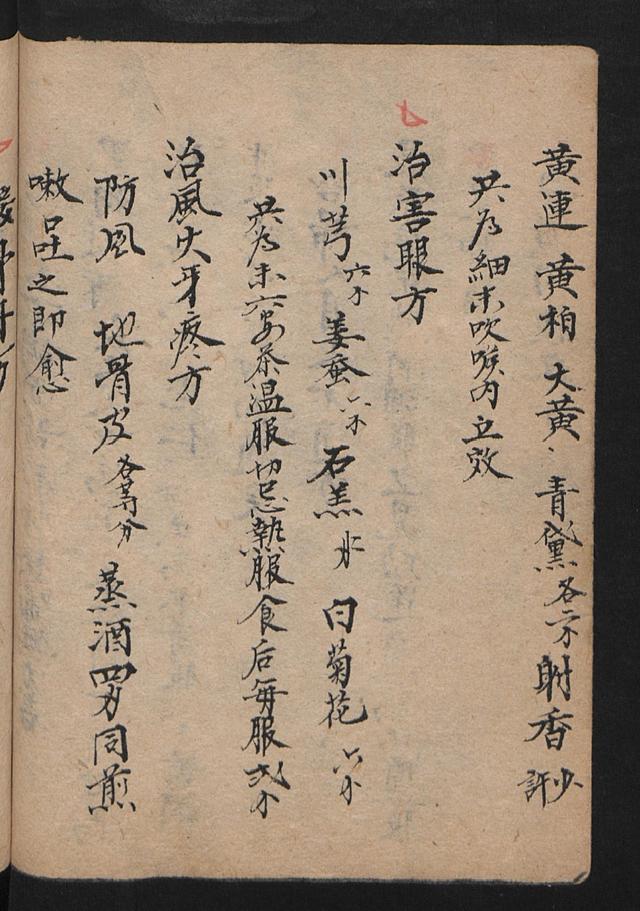 黃連 黃柏 大黃 青黛各二錢 射香少許
共為細末吹喉內立效
治害眼方
川芎六錢 姜蚕六錢 石羔 白菊花六錢
共為末 茶温服切忌热服食后每服弍錢
治風火牙疼方
防風 地骨皮各等分 蒸酒 同煎
嗽吐之即愈